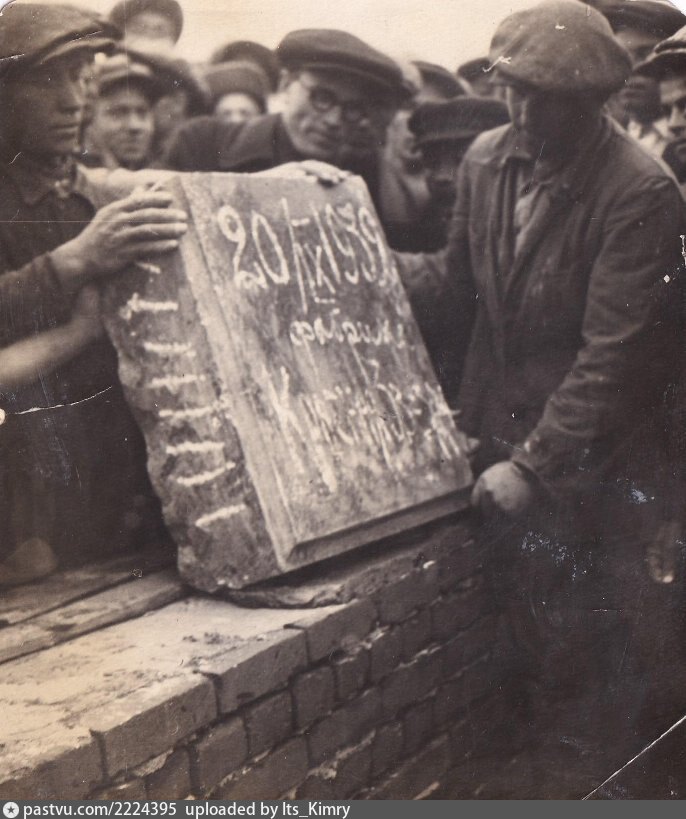 20/IX 1939
фабрика
pastvu.com/2224395 uploaded by Its_Kimry